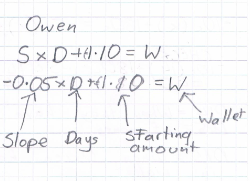 Owen
S x D + 1.10 = W
-0.05 x D + 1.10 = W
Slope Days Starting amount Wallet